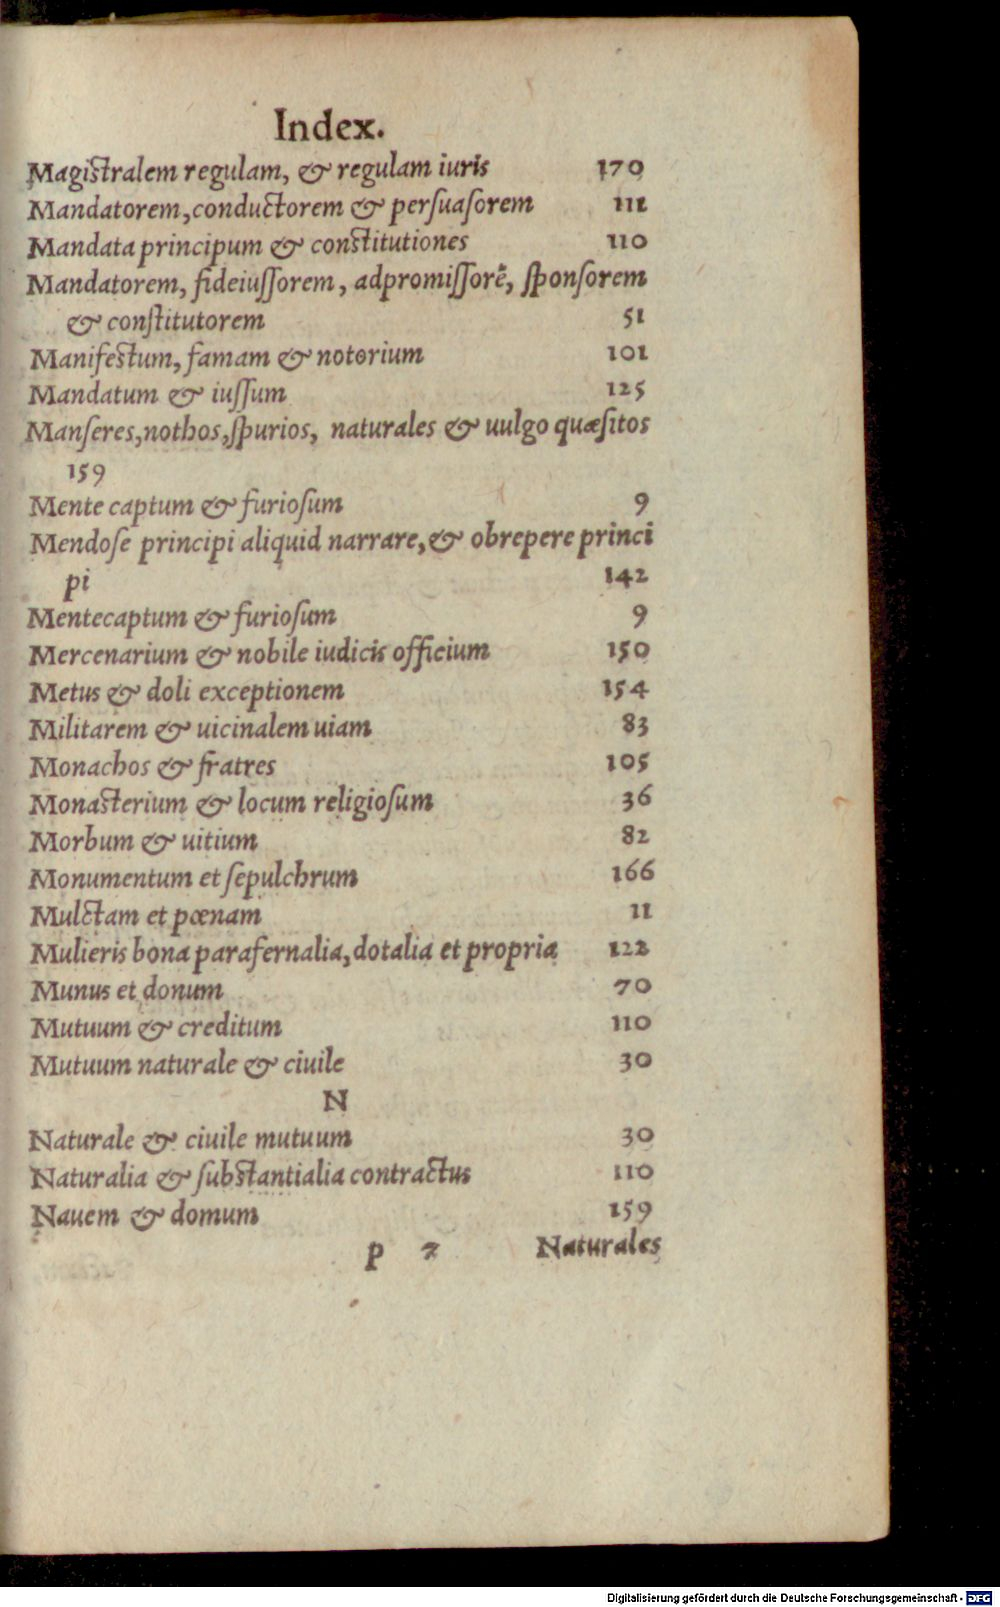 Index.
Magistralem regulam, & regulam iuris 170
Mandatorem, conductorem & persuasorem 111
Mandata principum & constitutiones 110
Mandatorem, fideiussorem, adpromissorē, sponsorem
& constitutorem 51
Manifestum, famam & notorium 101
Mandatum & iussum 125
Manseres, nothos, spurios, naturales & uulgo quæsitos
159
Mente captum & furiosum 9
Mendose principi aliquid narrare, & obrepere princi
pi 142
Mentecaptum & furiosum 9
Mercenarium & nobile iudicis officium 150
Metus & doli exceptionem 154
Militarem & uicinalem uiam 83
Monachos & fratres 105
Monasterium & locum religiosum 36
Morbum & uitium 82
Monumentum et sepulchrum 166
Mulctam et pœnam 11
Mulieris bona parafernalia, dotalia et propria 122
Munus et donum 70
Mutuum & creditum 110
Mutuum naturale & ciuile 30
N
Naturale & ciuile mutuum 30
Naturalia & substantialia contractus 110
Nauem & domum 159
p 2 Naturales
Digitalisierung gefördert durch die Deutsche Forschungsgemeinschaft - DFG